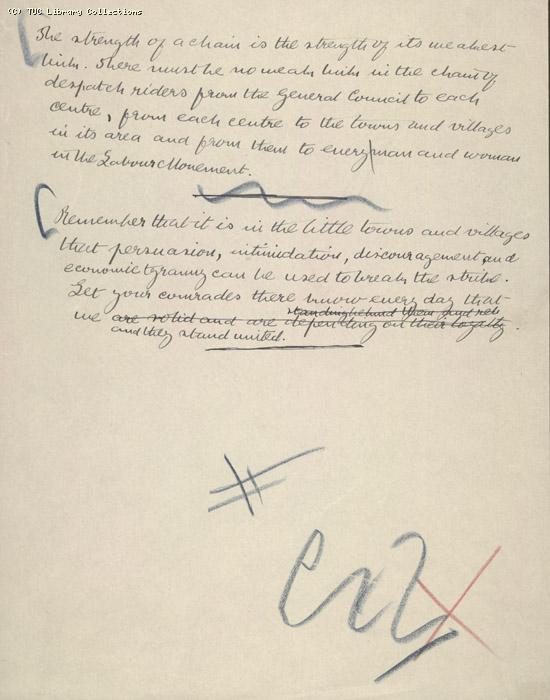 (C) TUC Library Collections
The strength of a chain is the strength of its weakest
link. There must be no weak link in the chain of
despatch riders from the General Council to each
centre, from each centre to the towns and villages
in its area and from them to every man and woman
in the Labour Movement.
Remember that it is in the little towns and villages
that persuasion, intimidation, discouragement and
economic tyranny can be used to break the strike.
Let your comrades there know every day that
standing behind them and
we are solid and are depending on their loyalty.
and they stand united.
#